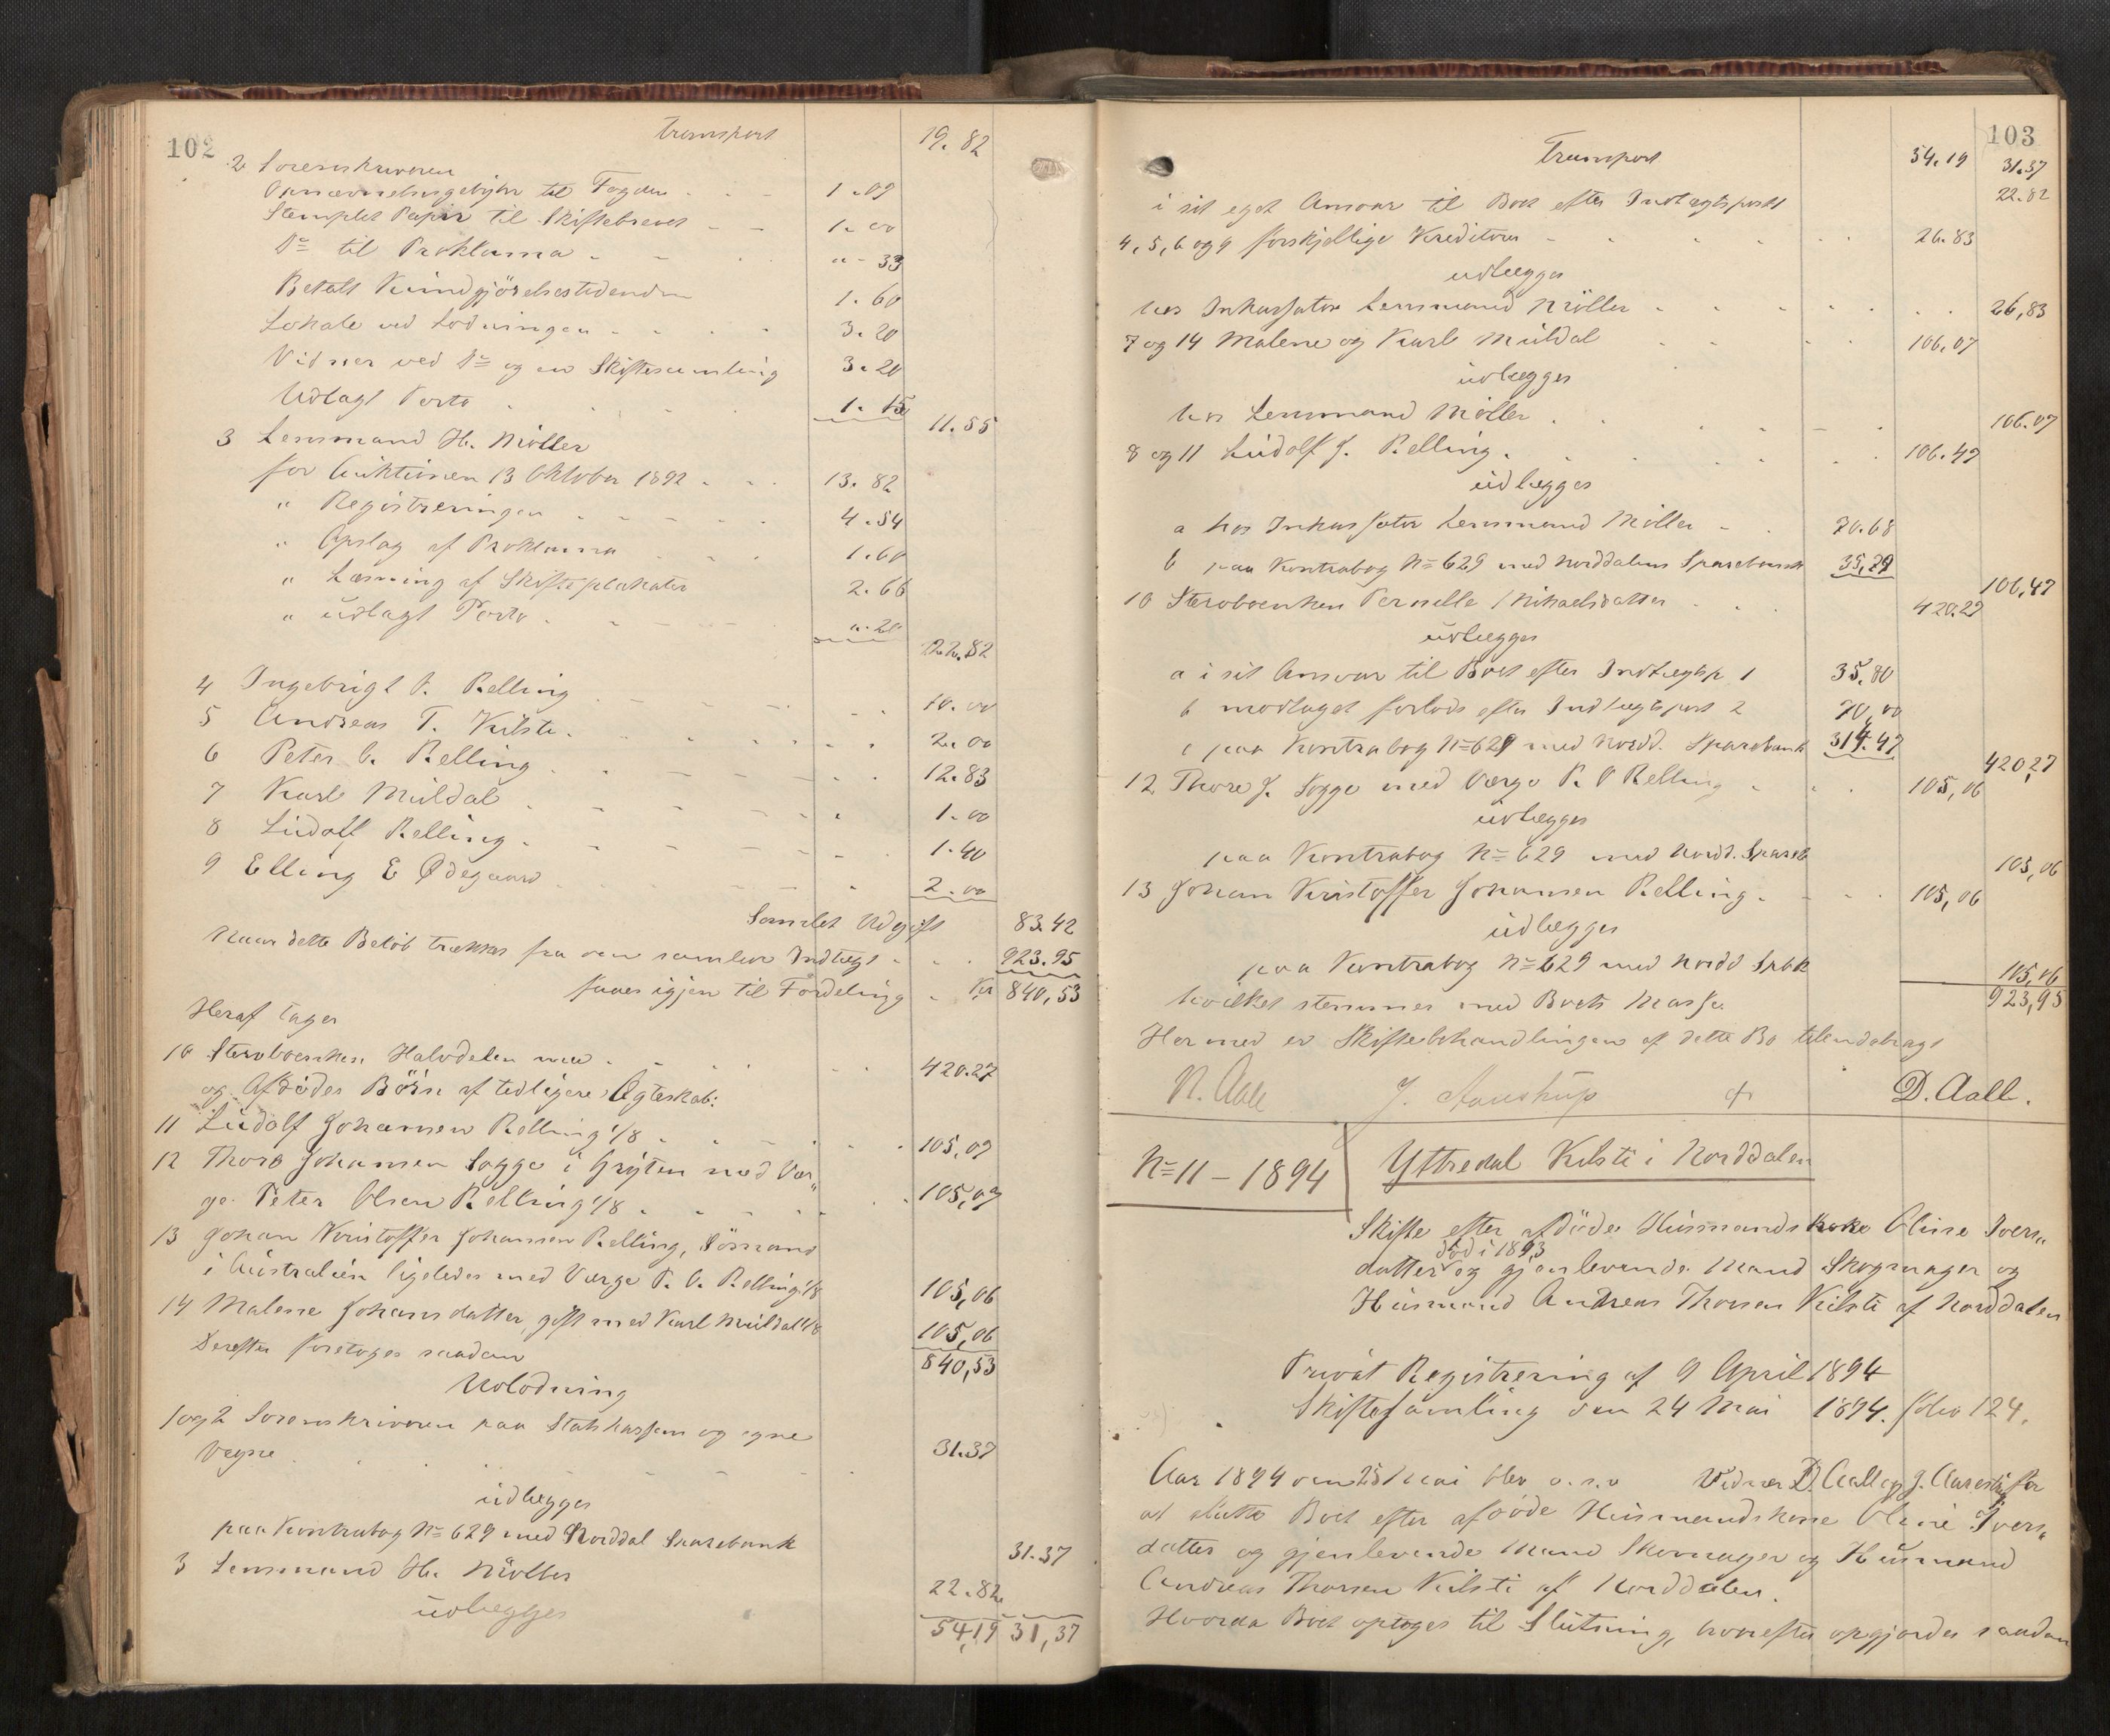 102
Transport 19.82
2 Sorenskriveren
Opnævnelsegebyhr til Fogden - - - 1.09
Stemplet Papir til Skiftebrevet - - 1.00
Do til Proklama - - . " - 33
Betalt Kundgjörelsestidenden 1.60
Lokale ved Lodningen - - - - 3.20
Vidner ved Do og en Skiftesamling 3.20
Udlagt Porto . . . . 1.15 11.55
3 Lensmand H. Möller
for Auktionen 13 Oktober 1892 - - - 13.82
" Registreringen - - - - - 4.54
" Opslag af Proklama - - - 1.60
" Læsning af Skifteplakater 2.66
" udlagt Porto - - - - ".20 22.82
4 Ingebrigt O. Relling - - - - 10.00
5 Andreas T. Kilsti - - - - 2.00
6 Peter O. Relling - - - - 12.83
7 Karl Muldal - - - - 1.00
8 Ludolf Relling - - - - 1.40
9 Elling E Ødegaard - - - - 2.00
Samlet Udgift 83.42
Naar dette Belöb trækkes fra den samlede Indtægt - - - 923.95
faaes igjen til Fordeling - Kr 840,53
Heraf tager
10 Stervboenken Halvdelen med - - - - 420.27
og Afdödes Börn af tidligere Ægteskab:
11 Ludolf Johansen Relling 1/8 - - - - 105,07
12 Thore Johansen Sogge i Gryten med Vær„
ge Peter Olsen Relling 1/8 - - - - 105,07
13 Johan Kristoffer Johansen Relling, Sömand
i Australien ligeledes med Værge P. O. Relling 1/8 105,06
14 Malene Johansdatter, gift med Karl Muldal 1/8 105,06
Derefter foretoges saadan 840,53
Udlodning
1 og 2 Sorenskriveren paa Statskassen og egne
Vegne - - - - 31.37
udlægges
paa Kontrabog No 629 med Norddal Sparebank 31.37
3 Lensmand H. Möller 22.82
udlægges
54,19 31,37
103
Transport 54.19 31.37
i sit eget Ansvar til Boet efter Indtægtspost 22.82
4, 5, 6 og 9 forskjellige Kreditorer - - - - 26.83
udlægges
hos Inkassator Lensmand Möller - - - - 26,83
7 og 14 Malene og Karl Muldal - - - - 106,07
udlægges
hos Lensmand Möller - - - - 106.07
8 og 11 Ludolf J. Relling - - - - 106.47
udlægges
a hos Inkassator Lensmand Möller - - 70.68
b paa Kontrabog No 629 med Norddalens Sparebank 35,79 106,47
10 Stervboenken Pernille Mikaelsdatter - - - 420.27
udlægges
a i sit Ansvar til Boet efter Indtægtsp 1 35,80
b modtaget forlods efter Indtægtspost 2 70,00
c paa Kontrabog No 629 med Nordd. Sparebank 314.47 420,27
12 Thore J. Sogge med Værge P. O Relling - - - 105,06
udlægges
paa Kontrabog No 629 med Nordd. Spareb 105,06
13 Johan Kristoffer Johansen Relling - - - - 105,06
udlægges
paa Kontrabog No 629 med Nordd Spbk 105,06
hvilket stemmer med Boets Masse 923,95
Hermed er Skiftebehandlingen af dette Bo tilendebragt
N. Aall J. Aarestrup D. Aall.
No 11 - 1894 Yttredal Kilsti i Norddalen
Skifte efter afdöde Husmandskone Oline Ivers„
död i 1893
datter og gjenlevende Mand Skogmager og
Husmand Andreas Thorsen Kilsti af Norddalen
Privat Registrering af 9 April 1894
Skiftesamling den 24 Mai 1894. folio 124.
Aar 1894 den 25 Mai blev o.s.v Vidner D. Aall og J. Aarestrup for
at slutte Boet efter afdöde Husmandskone Oline Ivers„
datter og gjenlevende Mand Skomager og Husmand
Andreas Thorsen Kilsti af Norddalen.
Hvorda Boet optoges til Slutning, hvorefter opgjordes saadan